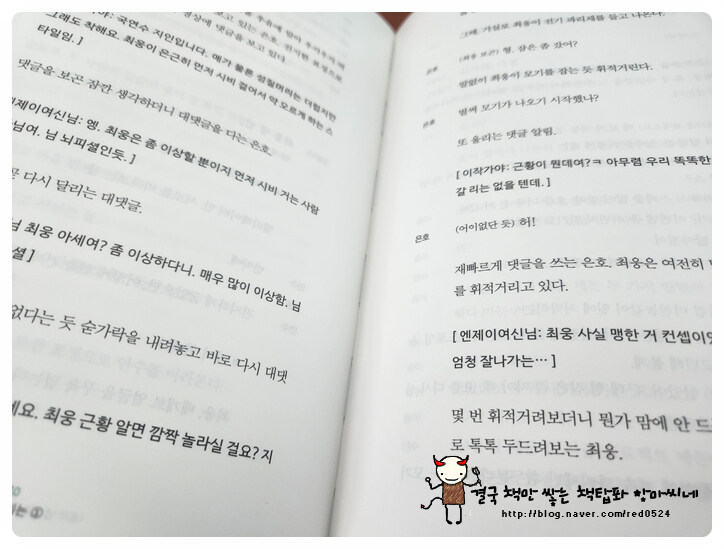 그래도 착해요. 최웅이 은근히 먼저 시비 걸어서 약 오르게 하는 스
타일임. ]
댓글을 보곤 잠깐 생각하더니 대댓글을 다는 은호.
엔제이여신님: 엥. 최웅은 좀 이상할 뿐이지 먼저 시비 거는 사람
님여. 님 뇌피셜인듯. ]
다시 달리는 대댓글.
님 최웅 아세여? 좀 이상하다니. 매우 많이 이상함. 님
셜 ]
없다는 듯 숟가락을 내려놓고 바로 다시 대댓
네요. 최웅 근황 알면 깜짝 놀라실 걸요? 지
그때, 거실로 최웅이 전기 파리채를 들고 나온다.
은호 (최웅 보곤) 형, 잠은 좀 잤어?
말없이 최웅이 모기를 잡는 듯 휘적거린다.
은호 벌써 모기가 나오기 시작했나?
또 울리는 댓글 알림.
[ 이작가야: 근황이 뭔데여?ㅋ 아무렴 우리 똑똑한
갈 리는 없을 텐데. ]
은호 (어이없단 듯) 허!
재빠르게 댓글을 쓰는 은호. 최웅은 여전히
를 휘적거리고 있다.
[ 엔제이여신님: 최웅 사실 맹한 거 컨셉이었
엄청 잘나가는… ]
몇 번 휘적거려보더니 뭔가 맘에 안 드
로 톡톡 두드려보는 최웅.
결국 책만 쌓는 책탑파 항마씨네
http://blog.naver.com/red0524